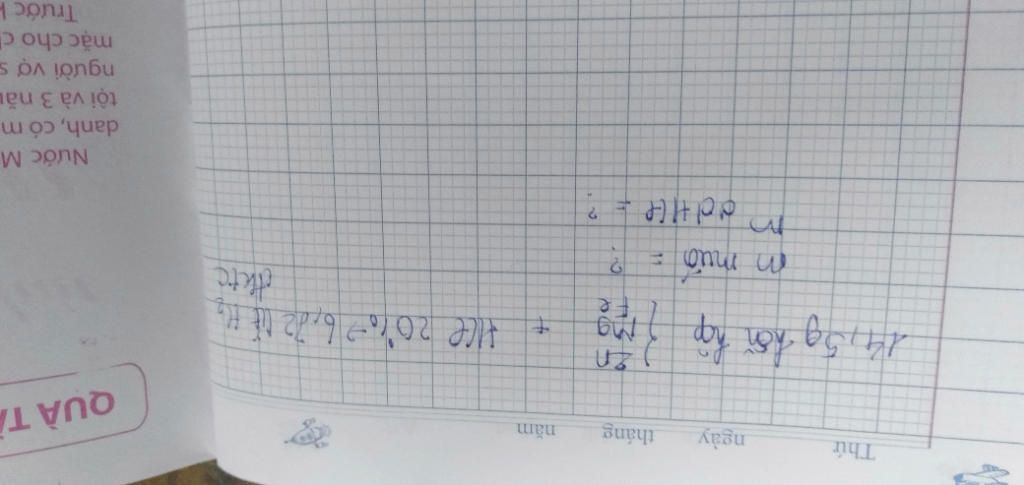 Thứ ngày tháng năm
14,5g hỗn hợp { Zn
Mg
Fe + HCl 20% → lít H₂
đktc
m muối = ?
m ddHCl = ?
QUÀ TÀ
Nước M
danh, có m
tội và 3 nă
người vợ s
mặc cho ch
Trước k